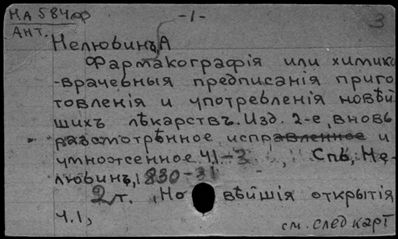 НА 584 ф
АНТ.
-1-
3
Нелюбинъ, А
Фармакографія или химико
-врачебныя предписания приго
товленія и употребленія новѣй
шихъ лѣкарствъ. Изд. 2-е, вновь
разсмотрѣнное исправленное и
умноженное Ч.1-3, Спб, Не-
любинъ, 1830-31
2 т. Но вѣйшія открытія
Ч.1,
см. след карт